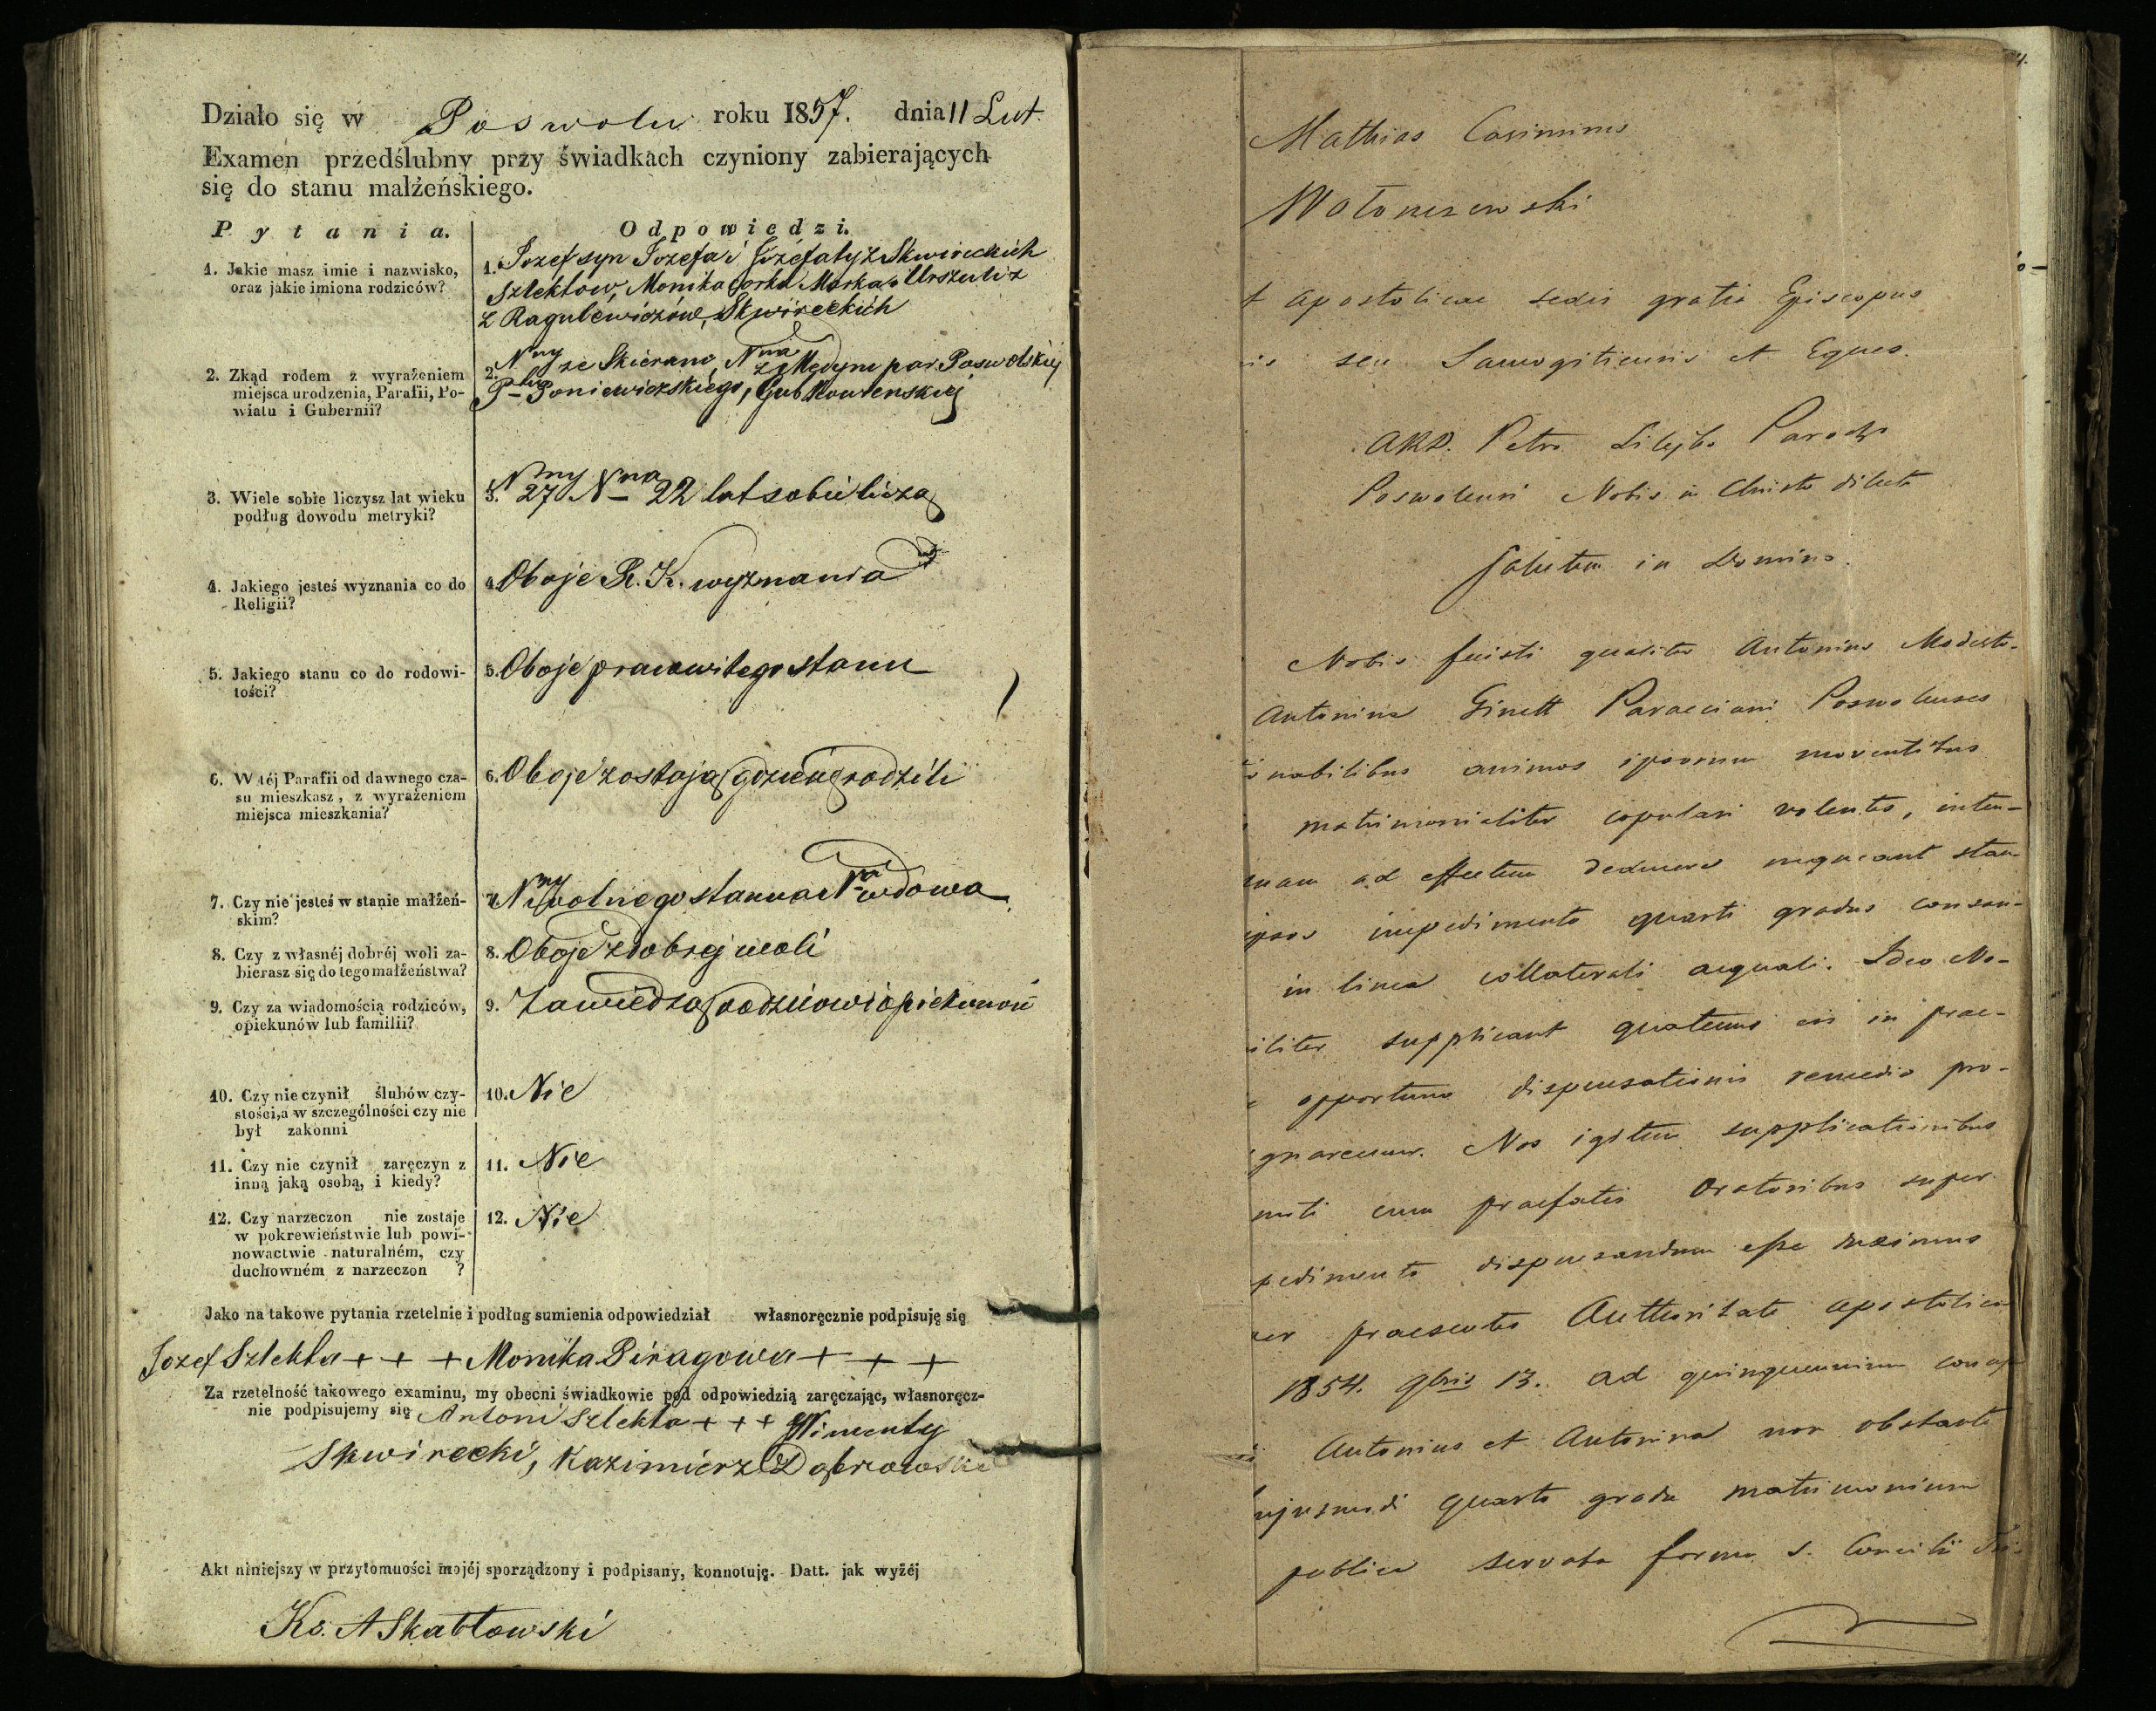 Działo się w Poswolu roku 1857. dnia 11 Lut.
Examen przedślubny przy świadkach czyniony zabierających
się do stanu małżeńskiego.
Pytania.
Odpowiedzi.
1. Jakie masz imie i nazwisko,
oraz jakie imiona rodziców?
1. Jozef syn Jozefa i Jozefaty z Skwireckich
Szlektow, Monika corka Marka i Urszuli z
z Ragulewiczów, Skwireckich
2. Zkąd rodem z wyrażeniem
miejsca urodzenia, Parafii, Po-
wiatu i Gubernii?
2. Nny ze Skieran, Nna z Mędyn par Poswolskiej
Ptu Poniewiezskiego, Gub Kowienskiej
3. Wiele sobie liczysz lat wieku
podług dowodu metryki?
3. Nny 27 Nna 22 lat sobie liczą
4. Jakiego jesteś wyznania co do
Religii?
4. Oboje R. K. wyznania
5. Jakiego stanu co do rodowi-
tości?
5. Oboje pracowitego stanu
6. W téj Parafii od dawnego cza-
su mieszkasz, z wyrażeniem
miejsca mieszkania?
6. Oboje zostają gdzie urodzili
7. Czy nie jesteś w stanie małżeń-
skim?
7. Nny wolnego stanu a Nna wdowa
8. Czy z własnéj dobréj woli za-
bierasz się do tego małżeństwa?
8. Oboje z dobrej woli
9. Czy za wiadomością rodziców,
opiekunów lub familii?
9. Za wiedzą rodziców i opiekunow
10. Czy nie czynił ślubów czy-
stości, a w szczególności czy nie
był zakonni
10. Nie
11. Czy nie czynił zaręczyn z
inną jaką osobą, i kiedy?
11. Nie
12. Czy narzeczon nie zostaje
w pokrewieństwie lub powi-
nowactwie naturalném, czy
duchowném z narzeczon ?
12. Nie
Jako na takowe pytania rzetelnie i podług sumienia odpowiedział własnoręcznie podpisuję się
Jozef Szlekta + + + Monika Piragowa + + +
Za rzetelność takowego examinu, my obecni świadkowie pod odpowiedzią zaręczając, własnoręcz-
nie podpisujemy się Antoni Szlekta + + + Wincenty
Skwirecki, Kazimierz Dąbrowski
Akt niniejszy w przytomności mojéj sporządzony i podpisany, konnotuję. Datt. jak wyżéj
Ks. A Skabłowski
Mathias Casimirus
Wołonczewski
t Apostolicae Sedis gratia Episcopus
is seu Samogitiensis et Eques.
ARD. Petro Lilejko Parocho
Poswolensi Nobis in Christo dilecto
Salutem in Domino.
Nobis fuisti qualiter Antonius Modesto-
Antonina Ginett Paraeciani Poswolenses
onabilibus animos ipsorum moventibus
matrimonialiter copulari volentes, inten-
nam ad effectum deducere nequeant stan
ipsos impedimento quarti gradus consan-
in linea collaterali aequali. Ideo No-
iliter supplicant quatenus eis in prae-
opportuno dispensationis remedio pro-
gnaremur. Nos igitur supplicationibus
nati cum praefatis Oratoribus super
pedimento dispensandum esse duximus
er praesentes Authoritate Apostolica
1854. 9bris 13. ad quinquennium concep
Antonius et Antonina non obstante
ujusmodi quarto gradu matrimonium
publice servata forma S. Concilii Tri-